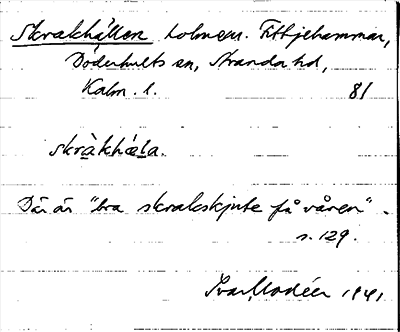 Skrakhällen holmen. Fittjehammar,
Döderhults sn, Stranda hd,
Kalm. l. 81
skràkhǽla.
Där är "bra skrakskjute på våren".
s. 129.
Ivar Modéer 1941